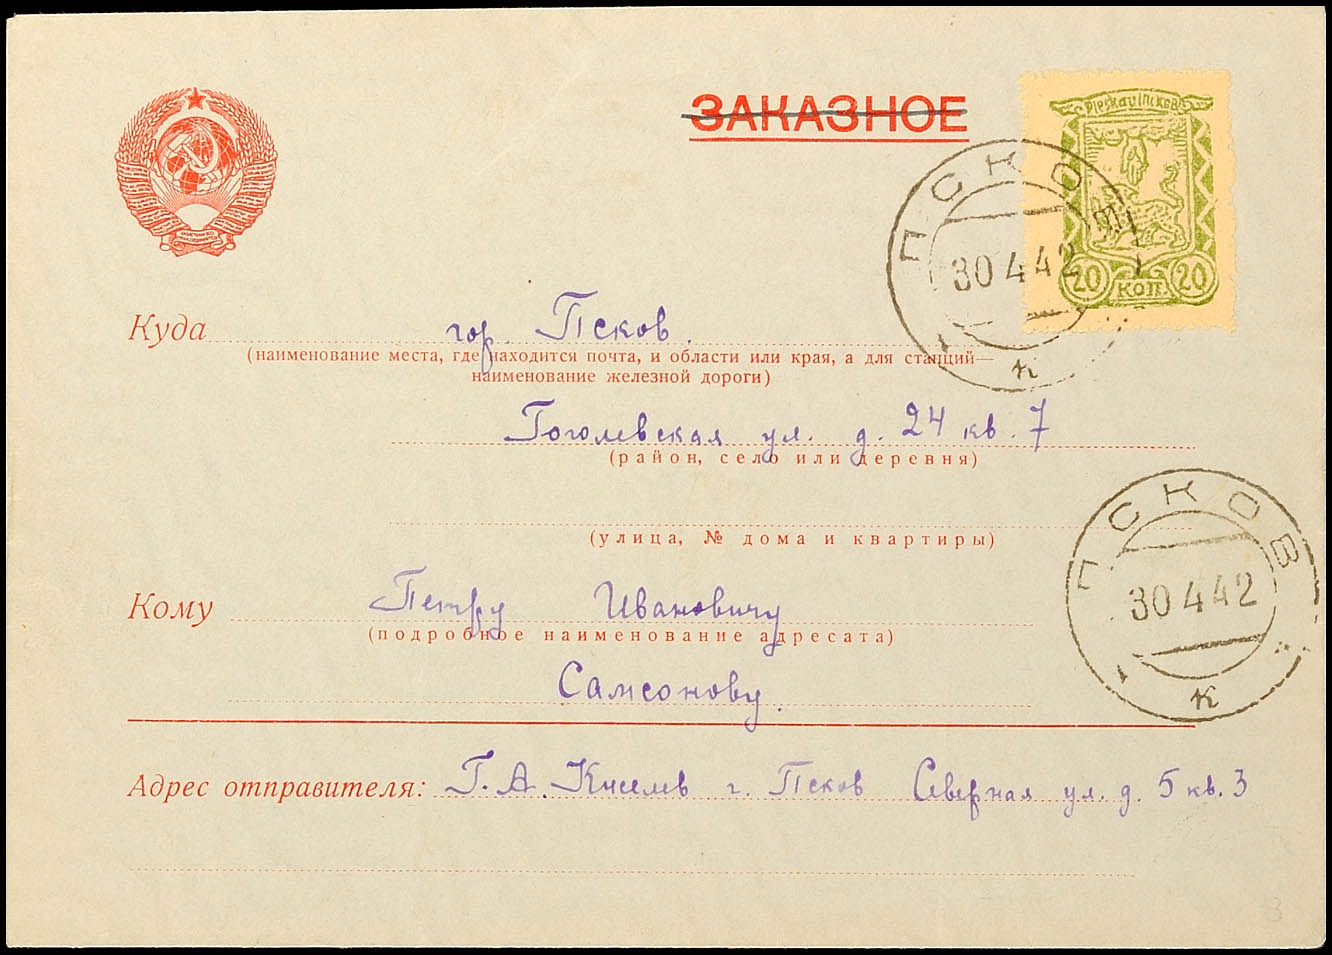 ЗАКАЗНОЕ
Pleskau Псков
20 коп. 20
ПСКОВ
30 4 42
к
Куда гор. Псков.
(наименование места, где находится почта, и области или края, а для станций—
наименование железной дороги)
Гоголевская ул. д. 24 кв. 7
(район, село или деревня)
(улица, № дома и квартиры)
ПСКОВ
30 4 42
к
Кому Петру Ивановичу
(подробное наименование адресата)
Самсонову.
Адрес отправителя: Г. А. Киселев г. Псков Северная ул. д. 5 кв. 3